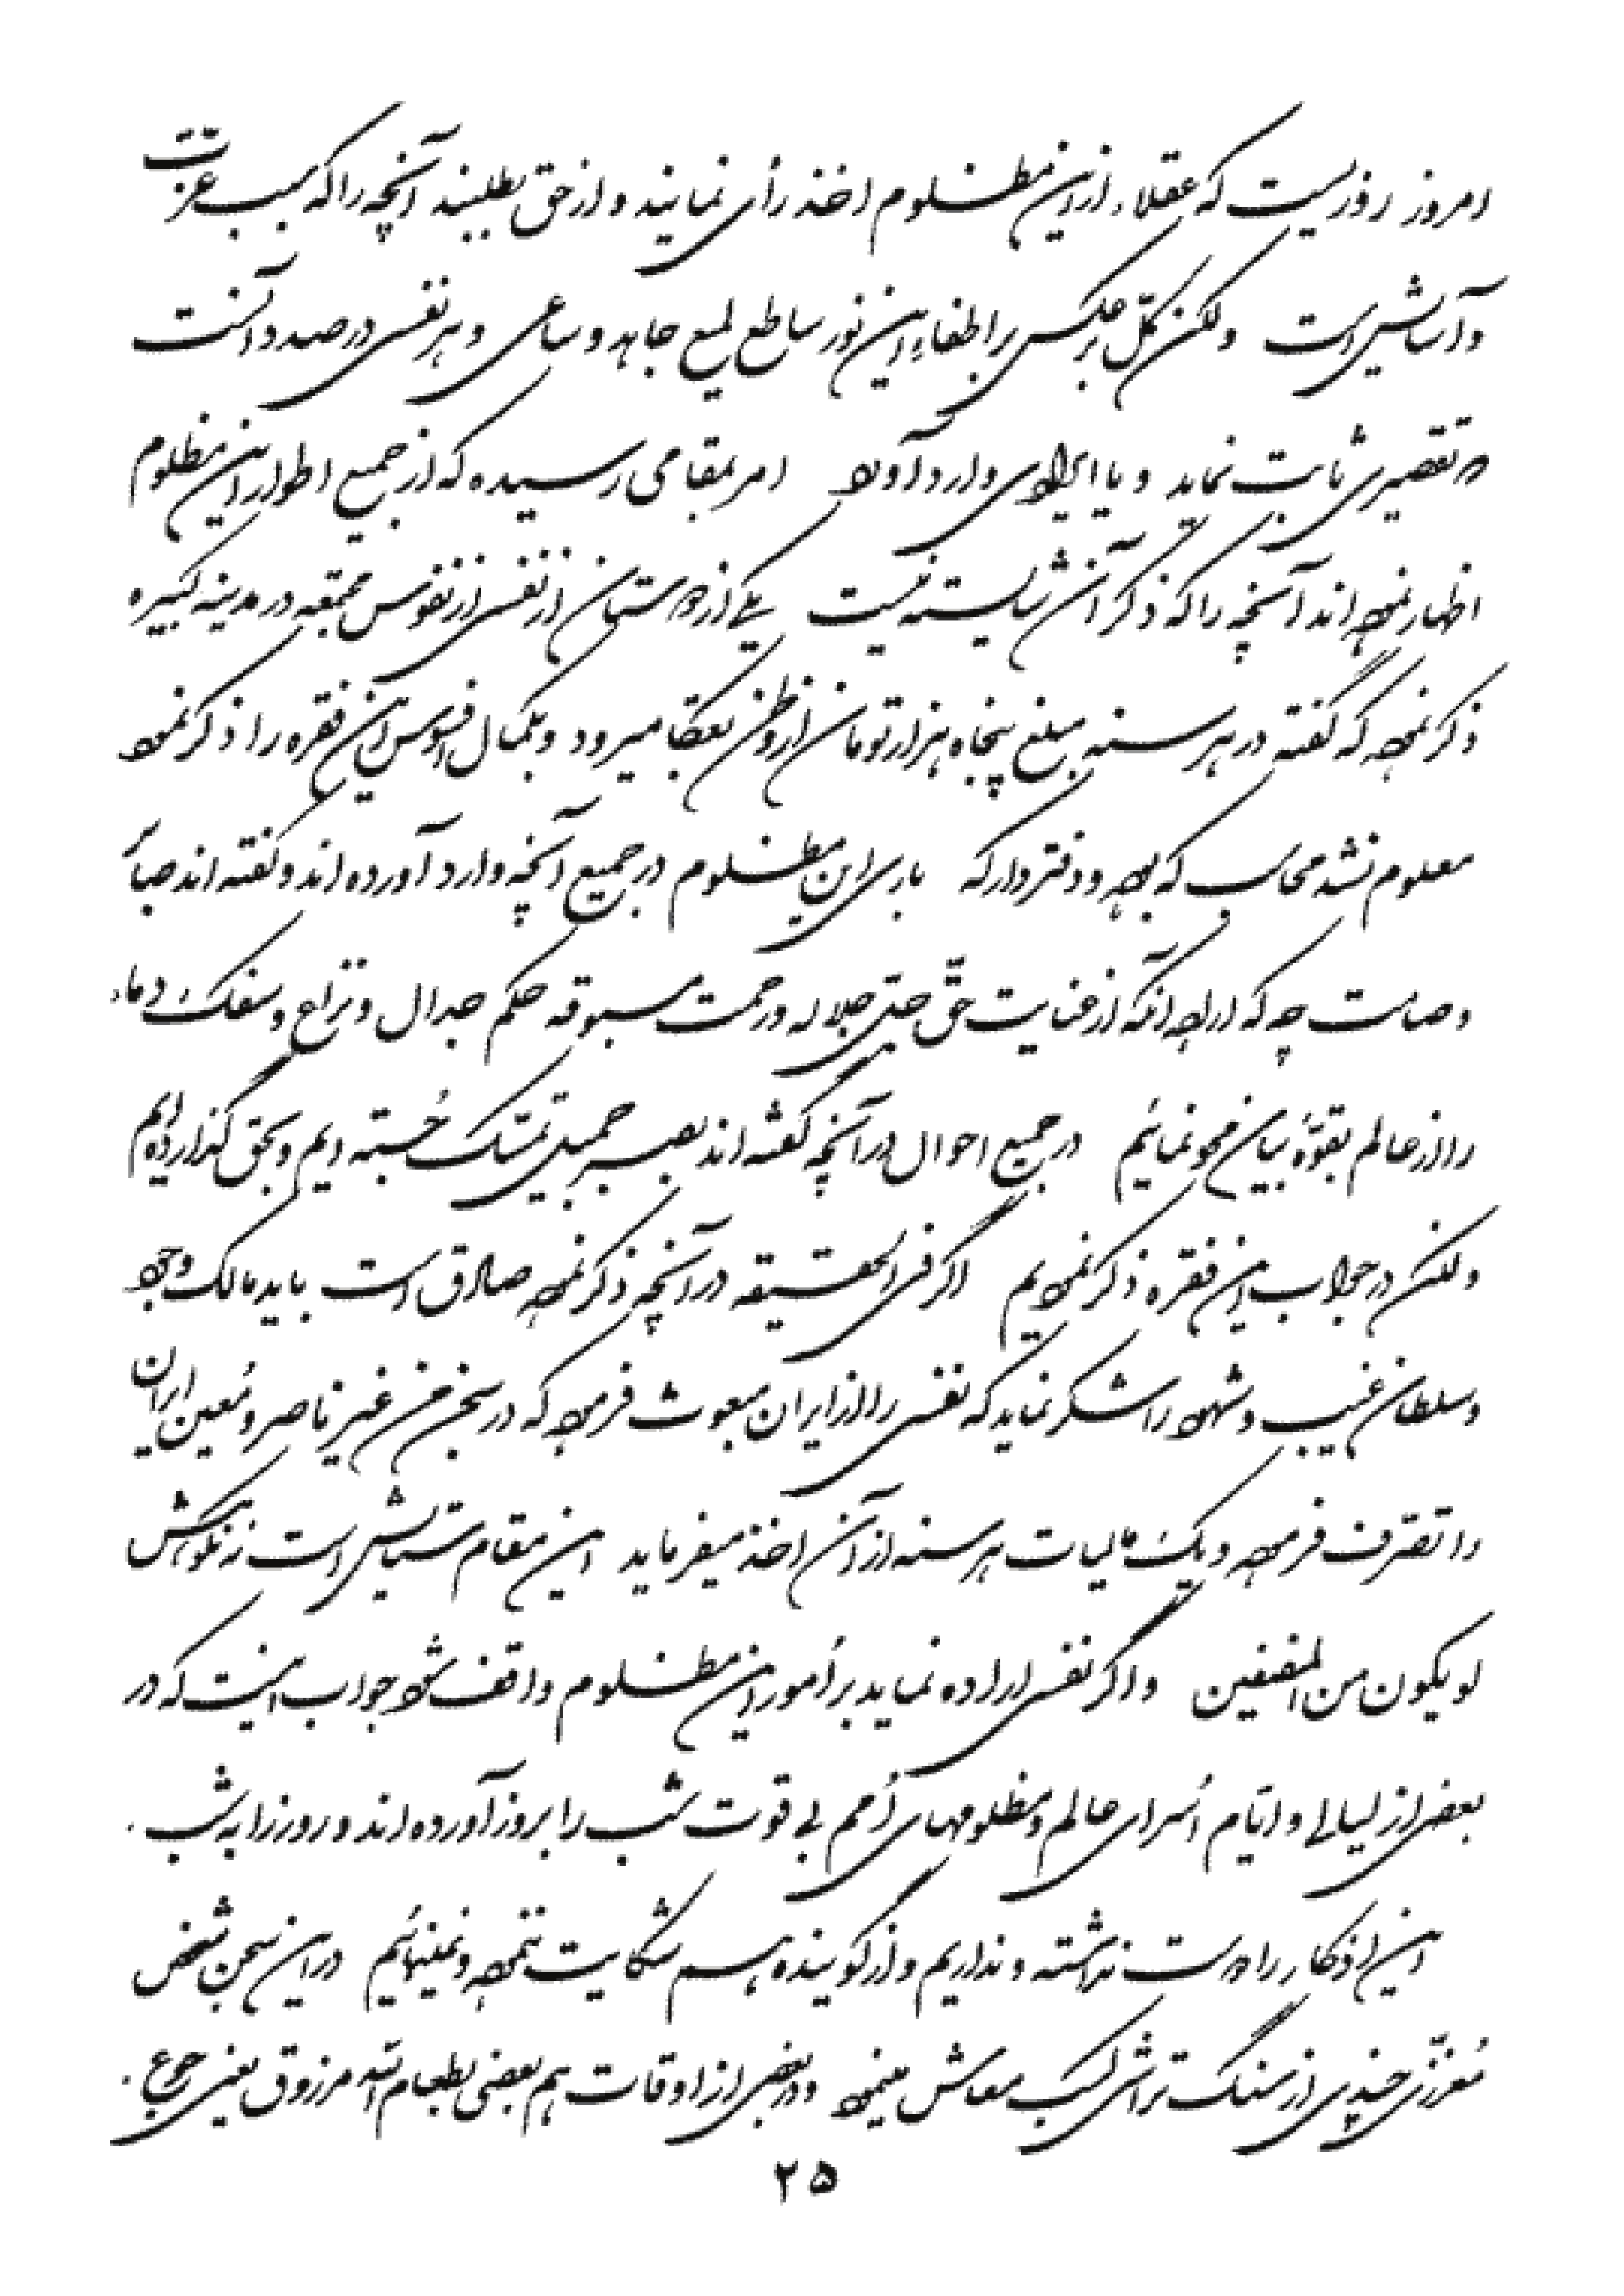 امروز روزیست که عقلاء ازین مظلوم اخذ رأی نمایند و از حق بطلبند آنچه را که سبب عزّت
و آسایش است ولکن کلّ برعکس بر اطفاء این نور ساطع لمیع جاهد و ساعی و هر نفسی در صدد آنست
که تقصیری ثابت نماید و یا ایرادی وارد آورد امر بمقامی رسیده که از جمیع اطوار این مظلوم
اظهار نموده‌اند آنچه را که ذکر آن شایسته نیست یکی از دوستان از نفسی از نفوس مجتمعه در مدینه کبیره
ذکر نموده که گفته در هر سنه مبلغ پنجاه هزار تومان از وطن بعکّا میرود و بکمال افسوس این فقره را ذکر نموده
معلوم نشد محاسب که بوده و دفتردار که باری این مظلوم در جمیع آنچه وارد آورده‌اند و گفته‌اند صبّار
و صامت چه که اراده آنکه از عنایت حقّ جلّ جلاله و رحمت مسبوقه حکم جدال و نزاع و سفک دماء
را از عالم بقوّهٔ بیان محو نمائیم در جمیع احوال در آنچه گفته‌اند بصبر جمیل تمسّک جُسته‌ایم و بحق گذارده‌ایم
ولکن در جواب این فقره ذکر نمودیم اگر فی الحقیقه در آنچه ذکر نموده صادق است باید مالک وجود
و سلطان غیب و شهود را شکر نماید که نفسی را از ایران مبعوث فرموده که در سجن من غیر ناصر و مُعین ایران
را تصرّف فرموده و یک مالیات هر سنه از آن اخذ میفرماید این مقام ستایش است نه نکوهش
لو یکون من المنصفین و اگر نفسی اراده نماید بر اُمور این مظلوم واقف شود جواب اینست که در
بعضی از لیالی و ایّام اُسرای عالم و مظلومهای اُمم بی قوت شب را بروز آورده‌اند و روز را به شب .
این اذکار را دوست نداشته و نداریم و از گوینده هم شکایت ننموده و نمینمائیم در این سجن شخص
مُعزّزی چندی از سنگ تراشی کسب معاش مینمود و در بعضی از اوقات هم بعضی بطعام اللّه مرزوق یعنی جوع .
۲۵